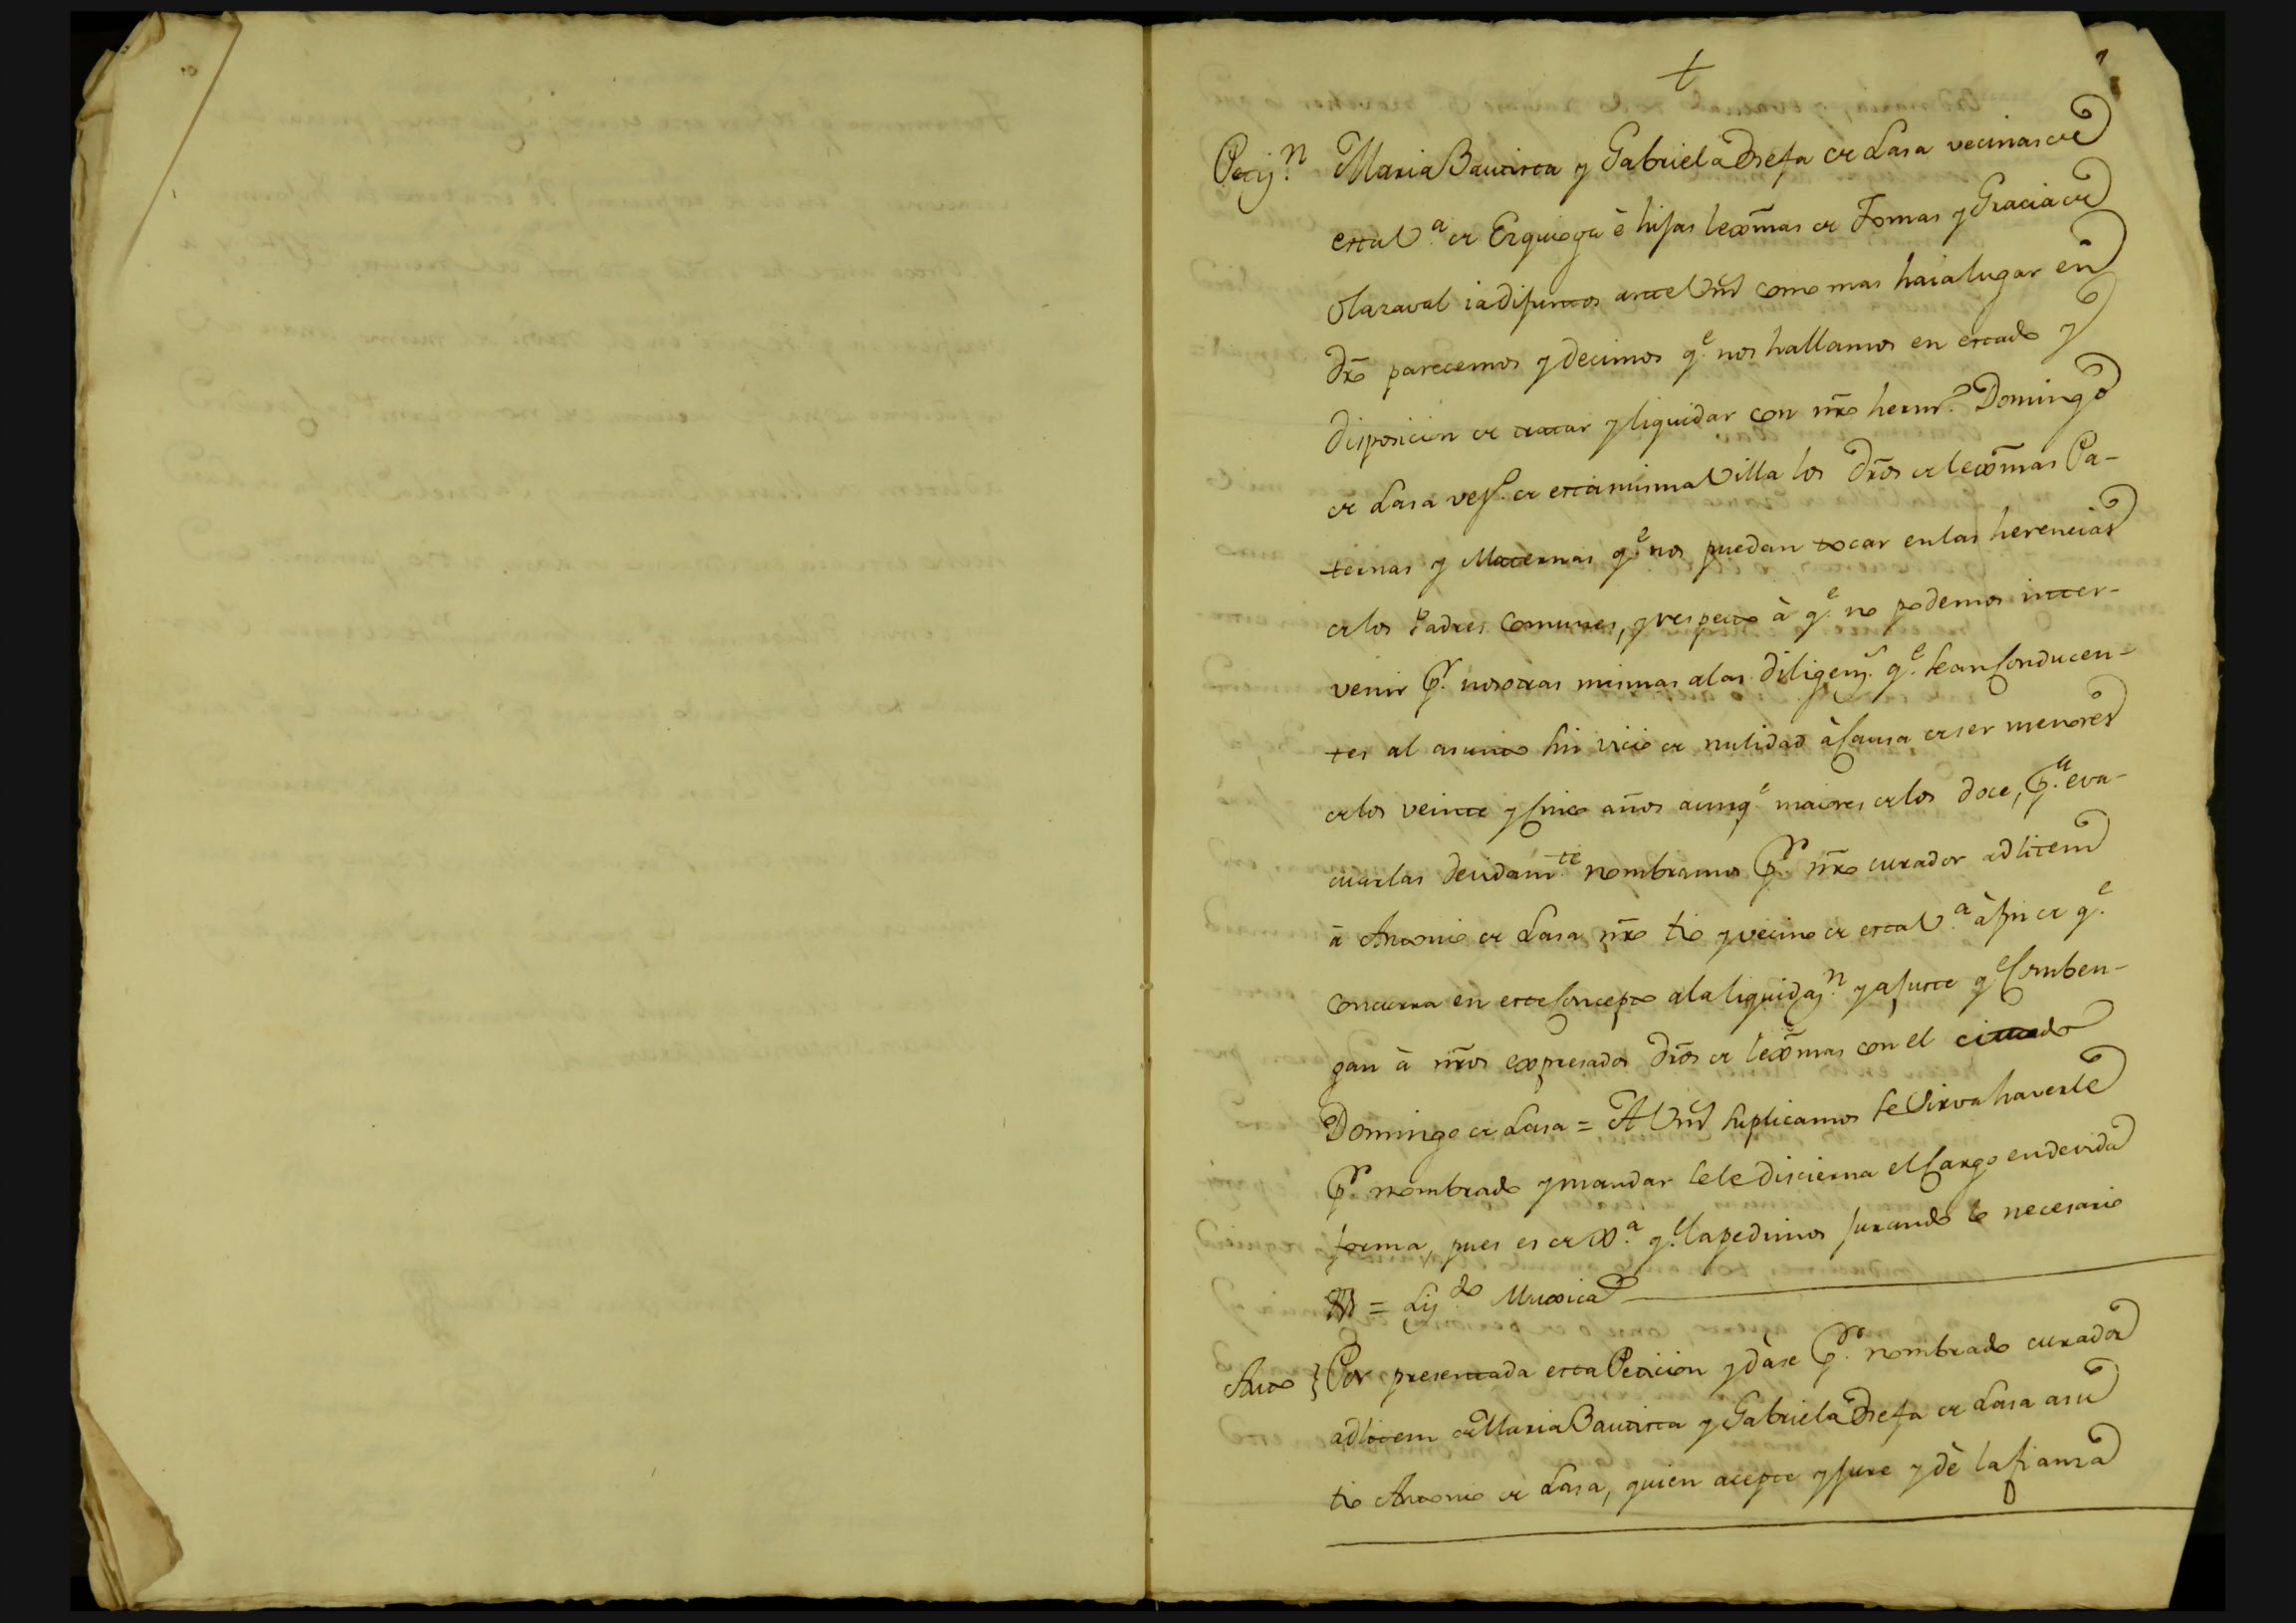 +
Petiz.n Maria Bautista y Gabriela Josefa de Lasa vecinas de
esta V.a de Ezquioga è hijas lexmas de Tomas y Gracia de
Olazaval ia difuntos ante Vmd como mas haia lugar en
dro parecemos y decimos q.e nos hallamos en estado y
disposicion de tratar y liquidar con nro herm.o Domingo
de Lasa vez.o de esta misma Villa los dros de lexmas Pa-
ternas y Maternas q.e nos puedan tocar en las herencias
de los Padres Comunes, y respecto à q.e no podemos inter-
venir p.r nosotras mismas a las diligenz.s q.e sean Conducen-
tes al asunto sin vicio de nulidad à Causa de ser menores
de los veinte y Cinco años aunq.e maiores de los doce, p.a eva-
cuarlas devidam.te nombramos p.r nro curador ad litem
à Antonio de Lasa nro tio y vecino de esta V.a à fin de q.e
concurra en este Concepto a la liquidaz.n y ajuste q.e Comben-
gan à nros expresados dros de lexmas con el citado
Domingo de Lasa = A Vmd suplicamos se Sirva haverle
p.r nombrado y mandar se le discierna el Cargo en devida
forma, pues es de Xx.a q.e la pedimos jurando lo necesario
= Liz.do Muxica
Auto } Por presentada esta Peticion y dàse p.r nombrado curador
ad litem de Maria Bautista y Gabriela Josefa de Lasa a su
tio Antonio de Lasa, quien acepte y jure y dè la fianza